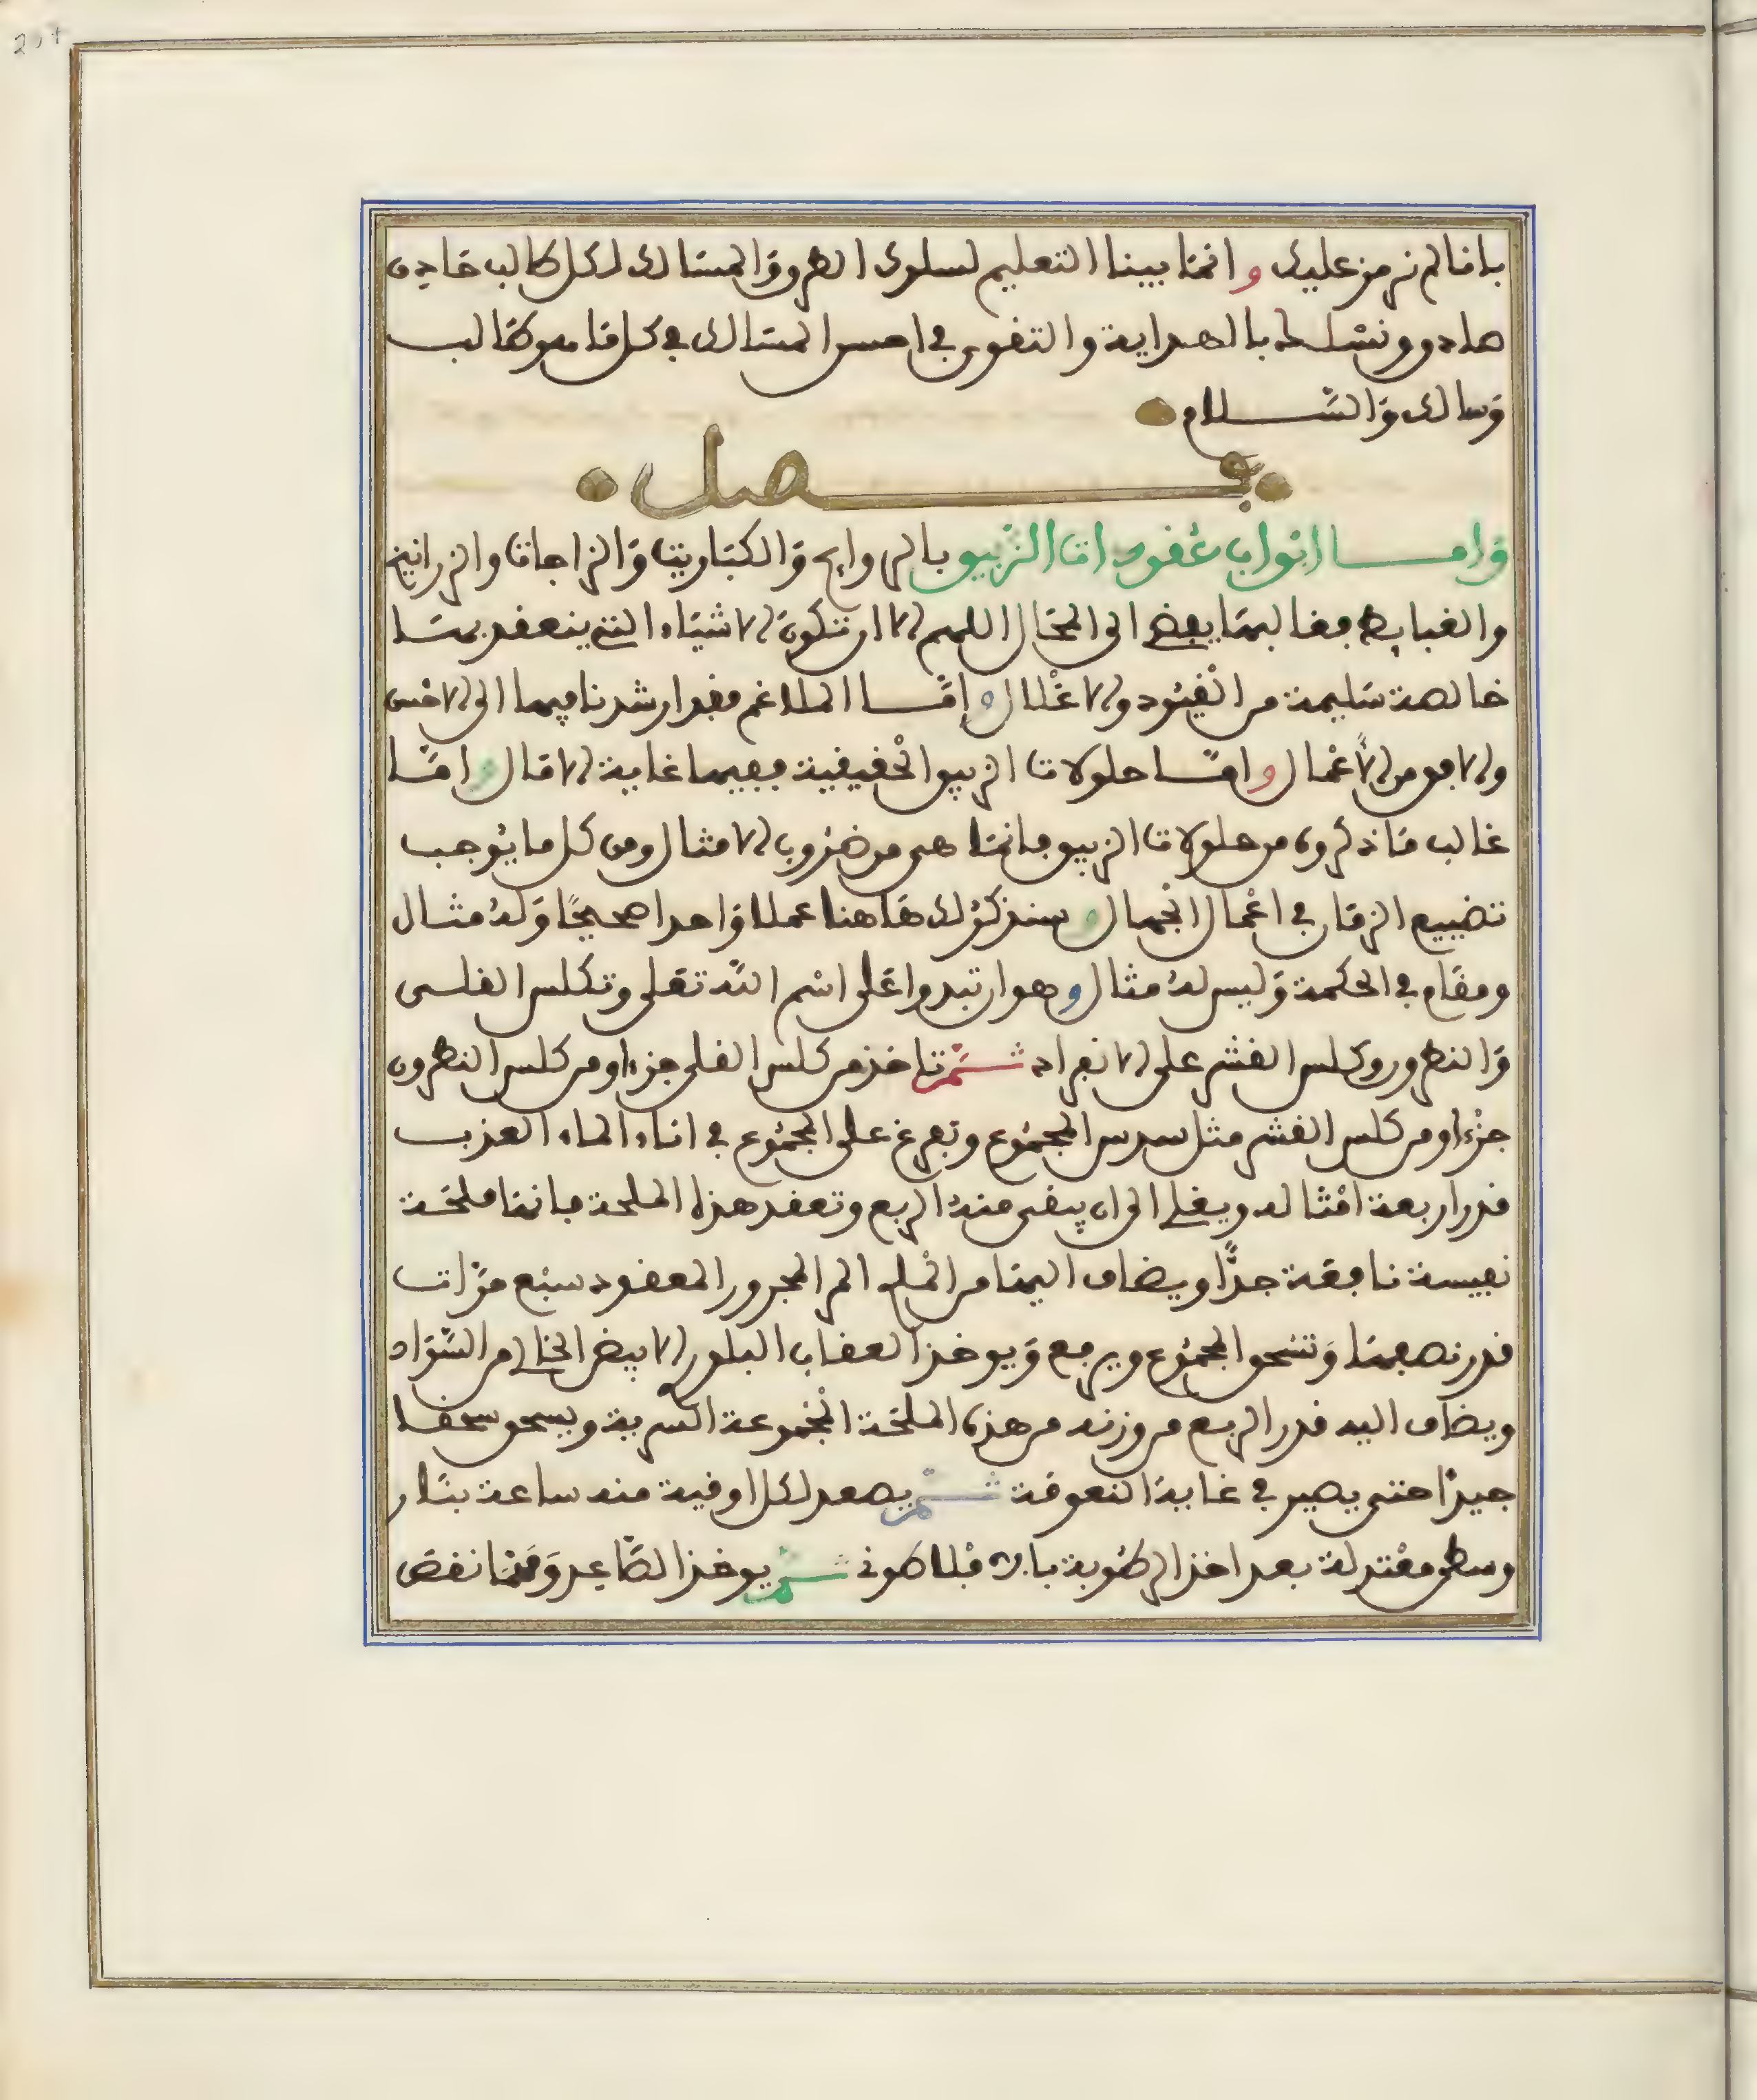 207
بانا لم نرمز عليك وانما بينا التعليم لسلوك الطروق المسالك لكل طالب صادق
هاد وونسله بالهداية والتقوى في احسن المسالك في كل ما هو طالب
وسالك والسلام
فصل
واما ابواب عقودات الزيبق بالروايح والكباريت والزاجات والزرانيخ
والقبايض فغالبها يفضي الى المحال اللهم الا ان تكون الاشياء التي ينعقد بها
خالصة سليمة من القيود والاغلال واما الملاغم فقد ارشدنا فيها الى الاحسن
والاوفق من الاعمال واما حلولات الزيبق الحقيقية ففيها غاية الامال واما
غالب ما ذكروه من حلولات الزيبق فانما هي من ضروب الامثال ومن كل ما يوجب
تضييع الزمان في اعمال الجهال وسنذكر لك هاهنا عملا واحدا صحيحا وله مثال
ومقام في الحكمة وليس له مثال وهو ان تبدوا على اسم الله تعلى وتكلس القلى
والنطرون وكلس القشر على الانفراد ثم تاخذ من كلس القلى جزءا ومن كلس النطرون
جزءا ومن كلس القشر مثل سدس المجموع وتفرغ على المجموع في اناء الماء العذب
قدر اربعة امثاله ويغلى الى ان يبقى منه الربع وتعقد هذه الملحة فانها ملحة
نفيسة نافعة جدا ويضاف اليها من الملح المر المجرور المعقود سبع مرات
قدر نصفها وتسحق المجموع ويرفع ويوخذ العقاب البلور الابيض الخالي من السواد
ويضاف اليه قدر الربع من وزنه من هذه الملحة المجموعة السرية ويسحق سحقا
جيدا حتى يصير في غاية النعومة ثم يصعد لكل اوقية منه ساعة بنار
وسطى معتدلة بعد اخذ الرطوبة بابن فلاطون ثم يوخذ الصاعد ومهما نقص